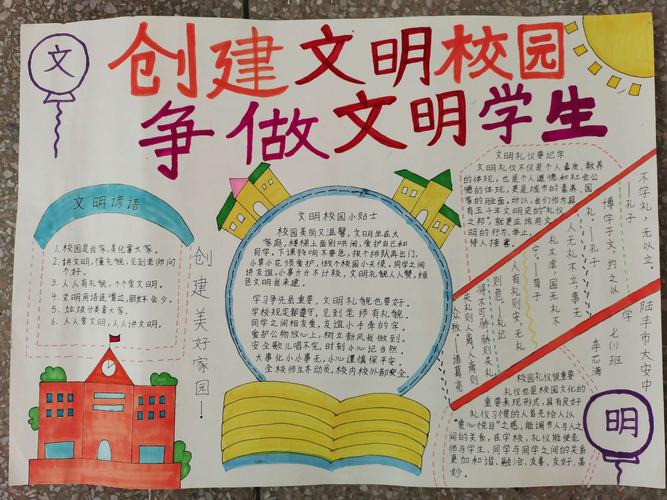 文
创建文明校园
争做文明学生
文明谚语
1.校园是我家,美化靠大家。
2.讲文明,懂礼貌,见到老师问
个好。
3.人人有礼貌,个个爱文明。
4.文明用语返嘴边,朋友不会少。
5.垃圾分类靠大家。
6.人人爱文明,人人讲文明。
创建美好家园!
文明校园小贴士
校园美丽又温馨,文明坐在大
家庭,楼梯上面别哄闹,爱护自己和
同学。下课铃响不要急,挨个排队再出门,
小草小花须爱护,做个校园小天使。同学之间
讲友谊,小事斤斤不计较,文明礼貌人人赞,绿色
文明我来建。
学习争先虽重要,文明礼貌也要好。
学校规定都遵守,见到老师有礼貌。
同学之间相友爱,友谊小手牵的牢。
爱护公物放心上,树立新风我做到。
安全歌儿唱不完,时刻小心记当然。
大事化小小事无,小心谨慎保平安。
全校师生齐动员,校内校外都安全。
文明礼仪要记牢
文明礼仪不仅是个人素质、教养
的体现,也是个人道德和社会公
德的体现,更是城市的素养、国
家的脸面。所以,我们作为具
有五千年文明史的"礼仪
之邦",就更应该用文
明的行为、举止,
待人接客。
不学礼,无以立。
——孔子
博学于文,约之以
礼。——孔子
人无礼不立,事无
礼不成,国无礼不
宁。——荀子
人有礼则安,无礼
则危。——礼记
将不可骄,骄则失礼,
失礼则人离,人离则
众叛。——诸葛亮
陆丰市大安中
学
七(1)班
李芯满
校园礼仪很重要
礼仪也是校园文化的
重要表现形式,具有良好
礼仪习惯的人首先给人以
"赏心悦目"之感,能调节人与人之
间的关系,在学校,礼仪能使老
师与学生、同学与同学之间的关系
更加和谐、融洽、友善、友好、美
妙。
明